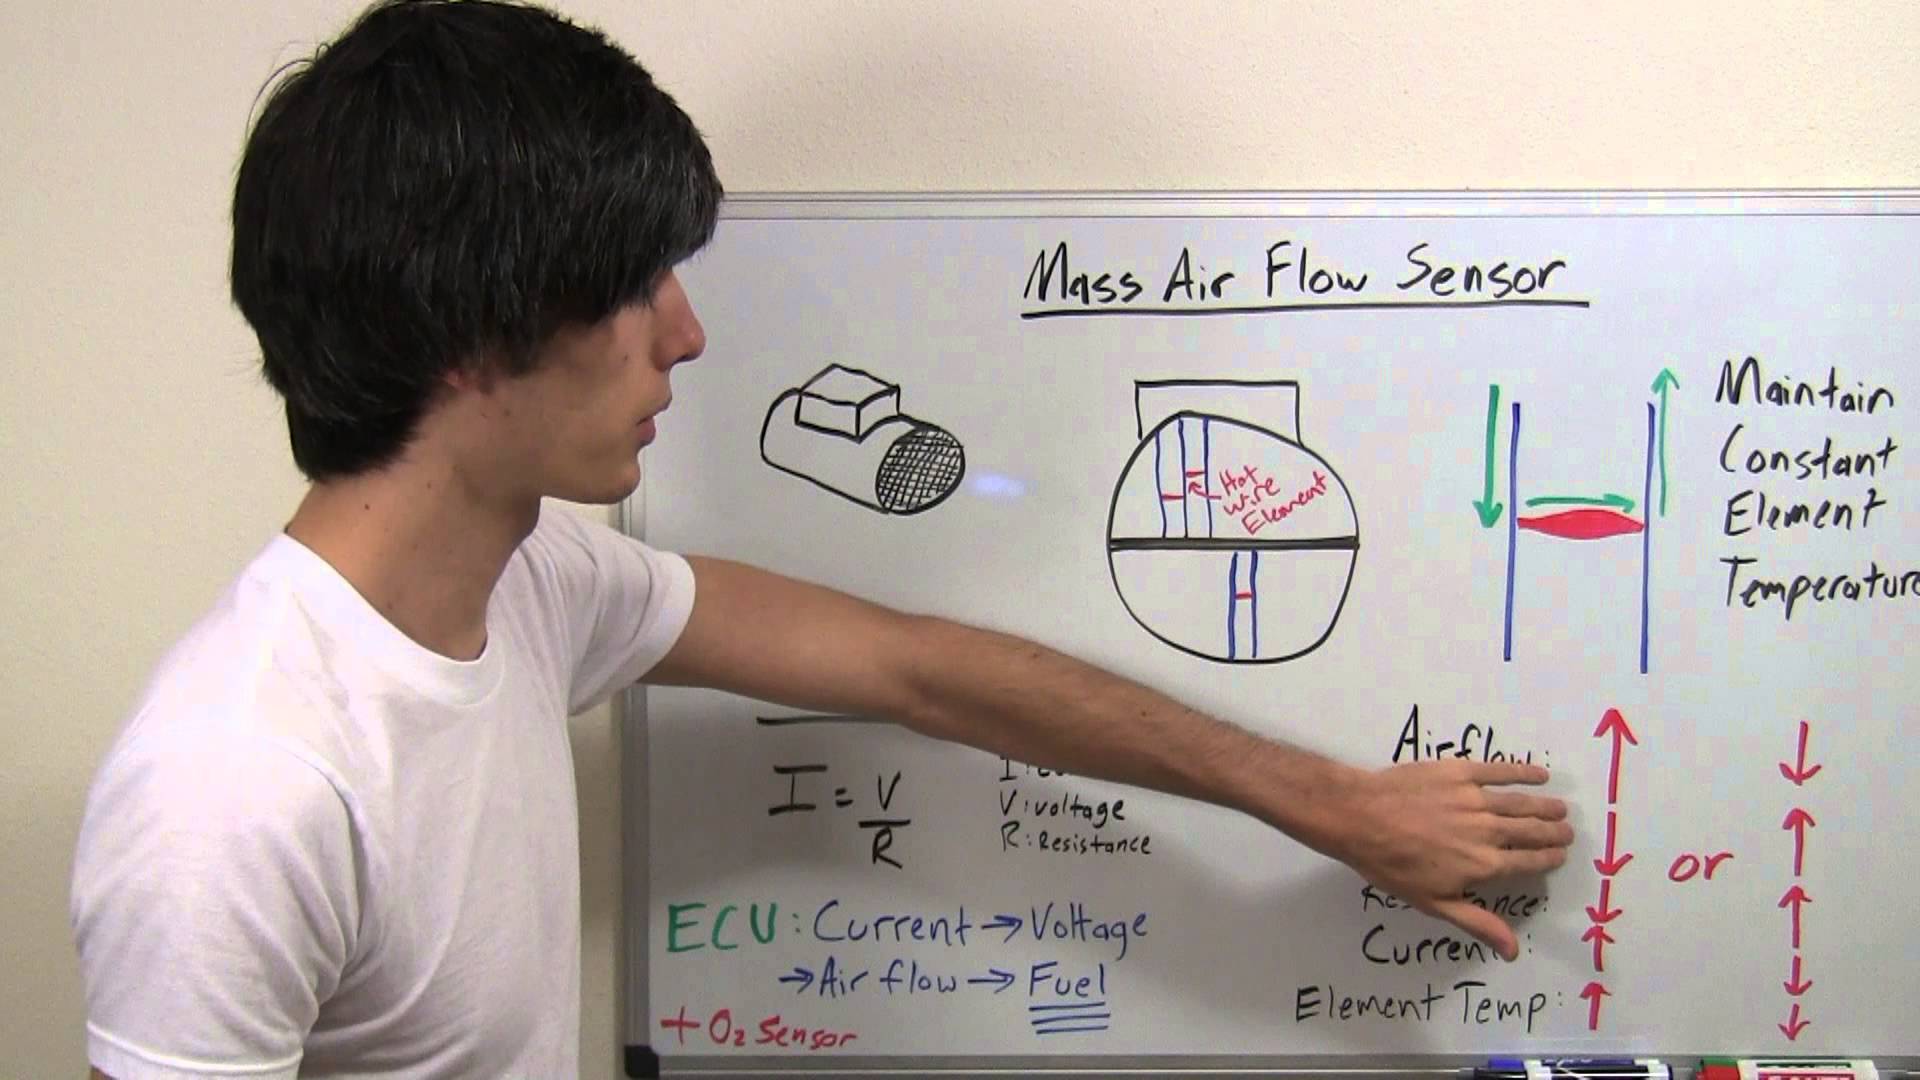 Mass Air Flow Sensor
Hot
Wire
Element
Maintain
Constant
Element
Temperature
I = V
R
V: voltage
R: Resistance
ECU: Current → Voltage
→ Air flow → Fuel
+ O₂ sensor
Airflow:
or
Current:
Element Temp: